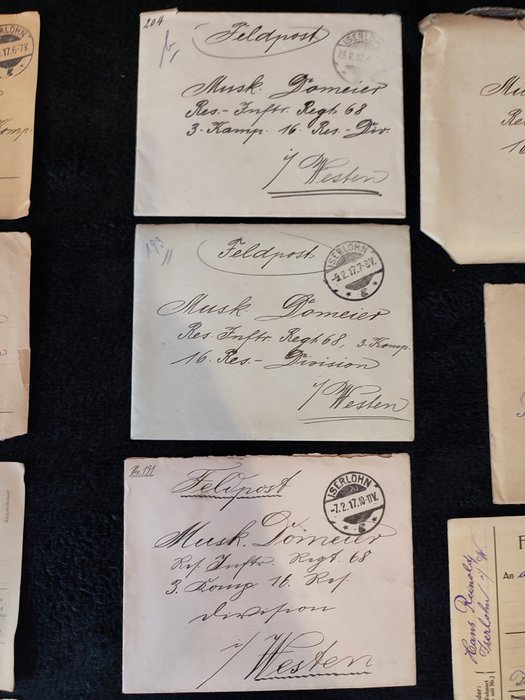 ISERLOHN
17.6-7V.
204
Feldpost
ISERLOHN
Musk. Domeier
Res.- Inftr. Regt 68
3. Kamp. 16. Res.- Div.
i/ Westen
193
Feldpost
ISERLOHN
-9.2.17.7-8V.
Musk. Domeier
Res. Inftr. Regt 68, 3. Komp.
16. Res.- Division
i/ Westen
Nr. 191
Feldpost
ISERLOHN
-7.2.17.10-11V.
Musk. Domeier
Res. Inftr. Regt. 68
3. Komp 16. Res.
Division
i/ Westen
Mu
Hans Reinold
Iserlohn i/W.
F
An